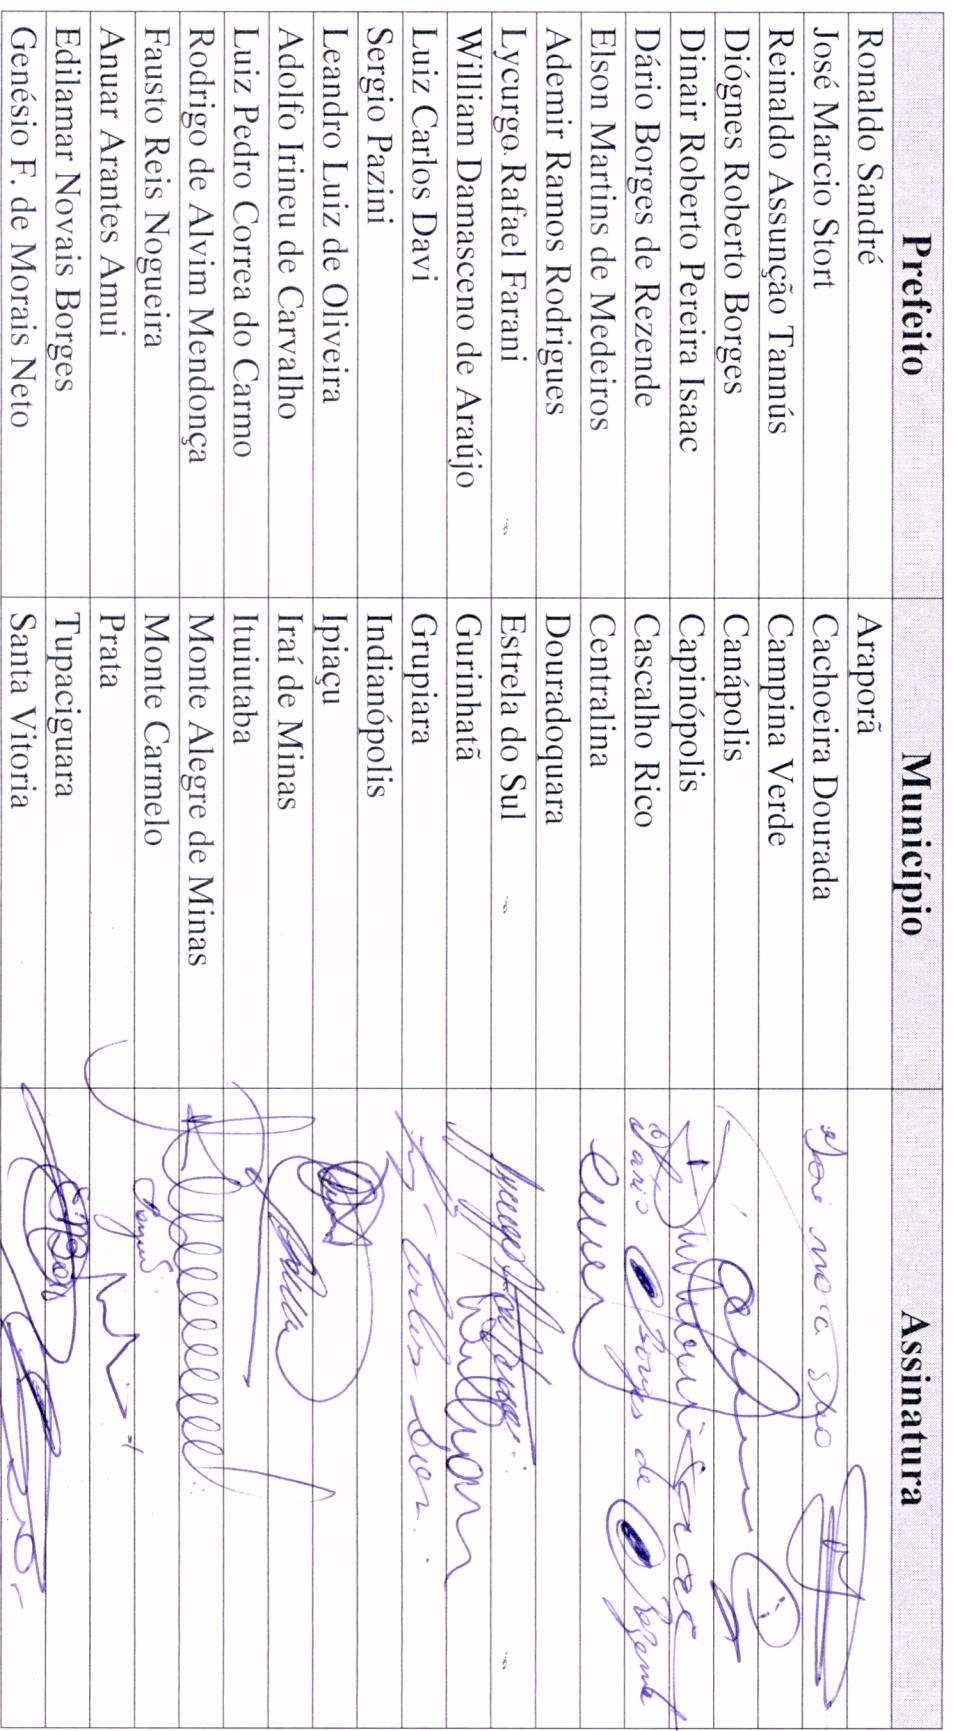 Prefeito Município Assinatura
Ronaldo Sandré Araporã
José Marcio Stort Cachoeira Dourada
Reinaldo Assunção Tannús Campina Verde
Diógnes Roberto Borges Canápolis
Dinair Roberto Pereira Isaac Capinópolis
Dário Borges de Rezende Cascalho Rico Dario Borges de Rezende
Elson Martins de Medeiros Centralina
Ademir Ramos Rodrigues Douradoquara
Lycurgo Rafael Farani Estrela do Sul
William Damasceno de Araújo Gurinhatã
Luiz Carlos Davi Grupiara
Sergio Pazini Indianópolis
Leandro Luiz de Oliveira Ipiaçu
Adolfo Irineu de Carvalho Iraí de Minas
Luiz Pedro Correa do Carmo Ituiutaba
Rodrigo de Alvim Mendonça Monte Alegre de Minas
Fausto Reis Nogueira Monte Carmelo
Anuar Arantes Amui Prata
Edilamar Novais Borges Tupaciguara
Genésio F. de Morais Neto Santa Vitoria